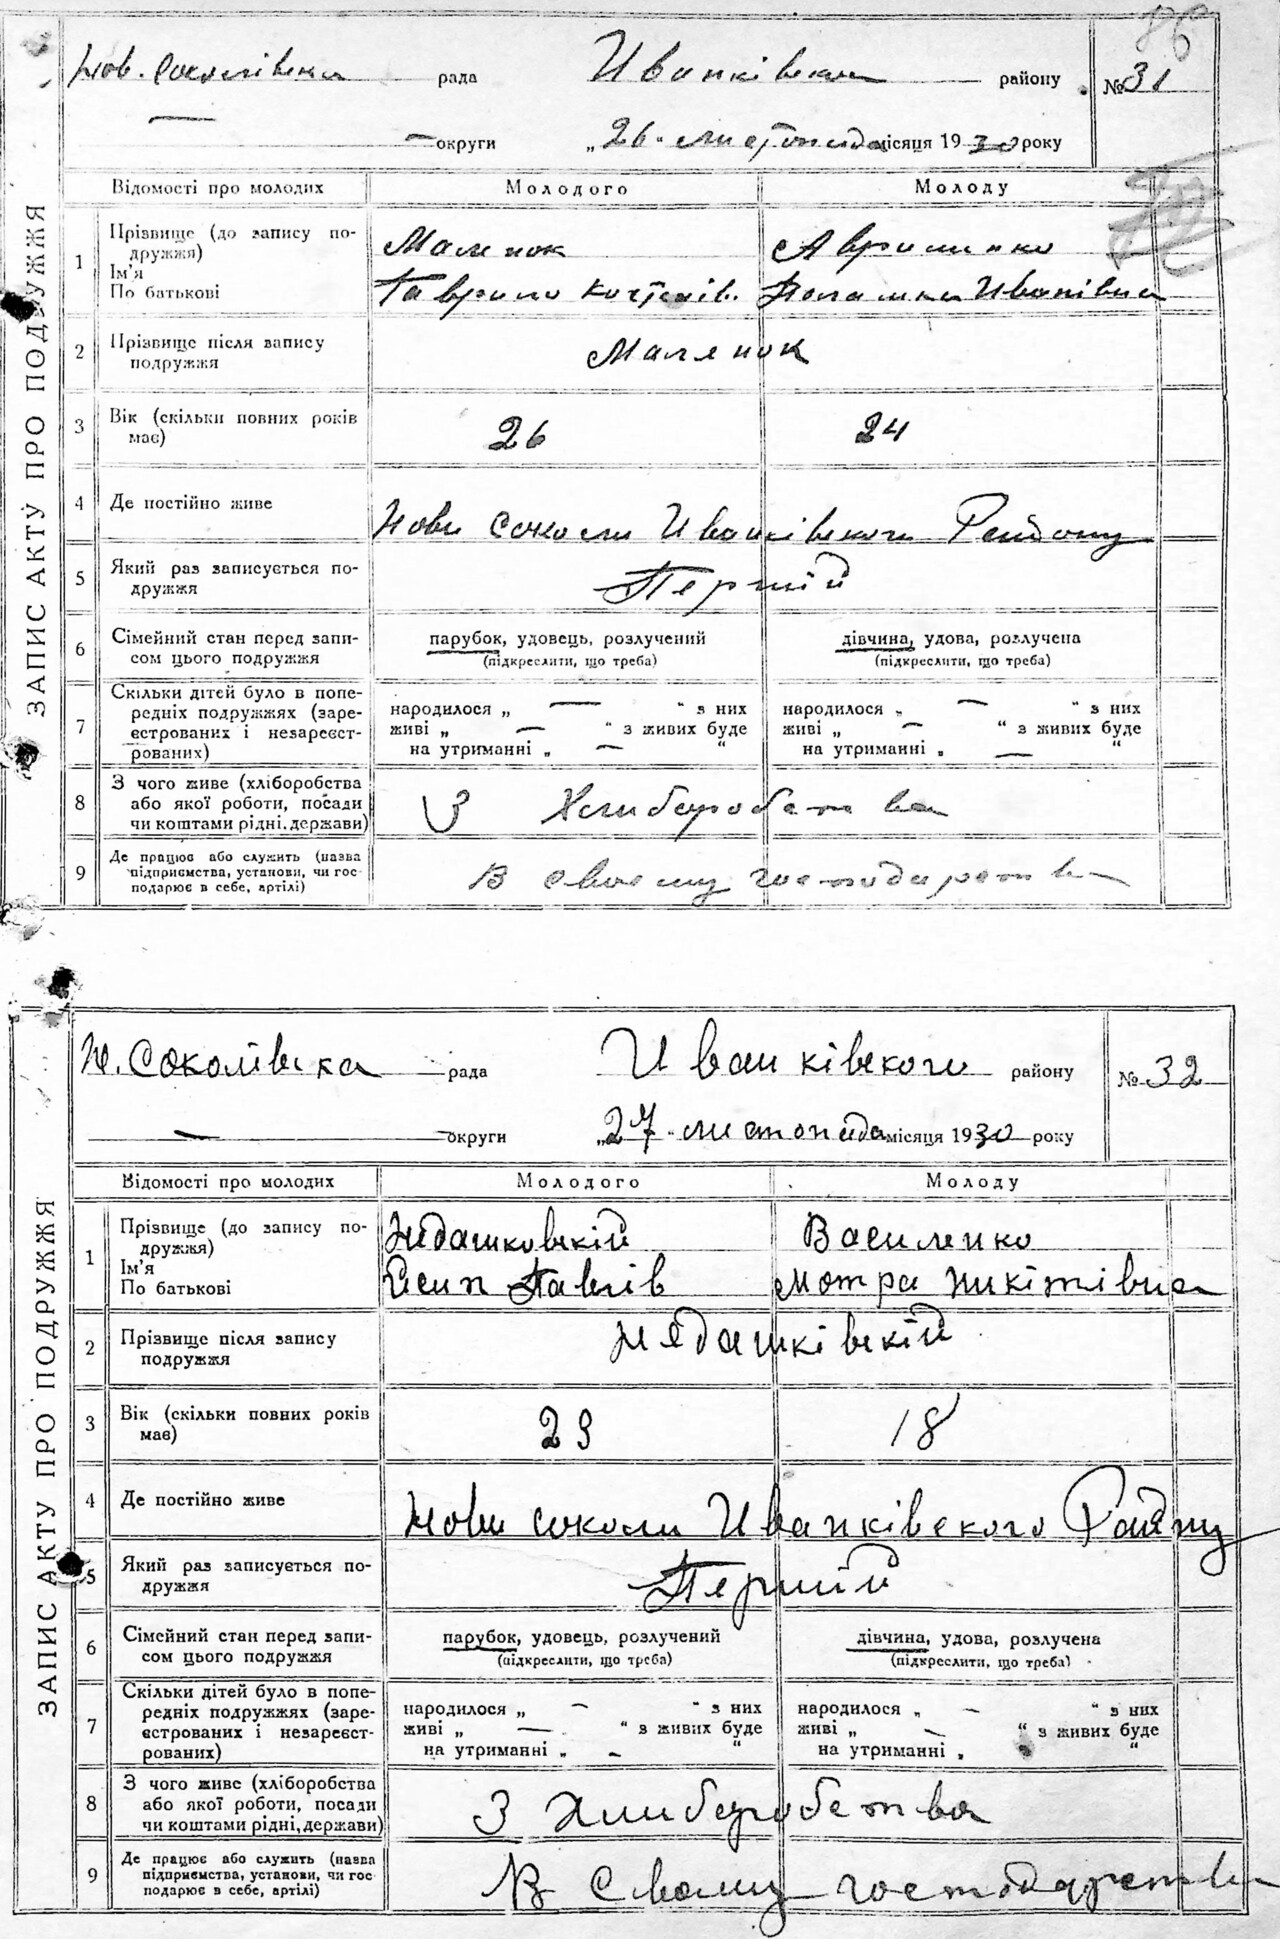 86
Нов. Соколівська рада Иванківськ району № 31
— округи „26" листопада місяця 1930 року
ЗАПИС АКТУ ПРО ПОДРУЖЖЯ
Відомості про молодих Молодого Молоду
1 Прізвище (до запису по-
дружжя) Маленок Авраминко
Ім'я
По батькові Гаврило Костянів. Палашка Иванівна
2 Прізвище після запису
подружжя Маленок
3 Вік (скільки повних років
має) 26 24
4 Де постійно живе Нови Соколи Иванківского Району
5 Який раз записується по-
дружжя Перший
6 Сімейний стан перед запи-
сом цього подружжя
парубок, удовець, розлучений дівчина, удова, розлучена
(підкреслити, що треба) (підкреслити, що треба)
7 Скільки дітей було в попе-
редніх подружжях (заре-
єстрованих і незареєст-
рованих)
народилося „ — " з них народилося „ — " з них
живі „ — " з живих буде живі „ — " з живих буде
на утриманні „ — " на утриманні „ — "
8 З чого живе (хліборобства
або якої роботи, посади
чи коштами рідні, держави) З Хлиборобства
9 Де працює або служить (назва
підприємства, установи, чи гос-
подарює в себе, артілі) В своєму господарстві
Н. Соколівска рада Иванківского району № 32
— округи „27" листопада місяця 1930 року
ЗАПИС АКТУ ПРО ПОДРУЖЖЯ
Відомості про молодих Молодого Молоду
1 Прізвище (до запису по-
дружжя) Нидашковский Василенко
Ім'я
По батькові Есип Павлів Мотра Никітівна
2 Прізвище після запису
подружжя Нядашківский
3 Вік (скільки повних років
має) 23 18
4 Де постійно живе Нови Соколи Иванківского Району
5 Який раз записується по-
дружжя Перший
6 Сімейний стан перед запи-
сом цього подружжя
парубок, удовець, розлучений дівчина, удова, розлучена
(підкреслити, що треба) (підкреслити, що треба)
7 Скільки дітей було в попе-
редніх подружжях (заре-
єстрованих і незареєст-
рованих)
народилося „ — " з них народилося „ — " з них
живі „ — " з живих буде живі „ — " з живих буде
на утриманні „ — " на утриманні „ "
8 З чого живе (хліборобства
або якої роботи, посади
чи коштами рідні, держави) З Хлиборобства
9 Де працює або служить (назва
підприємства, установи, чи гос-
подарює в себе, артілі) В Своему господарстви